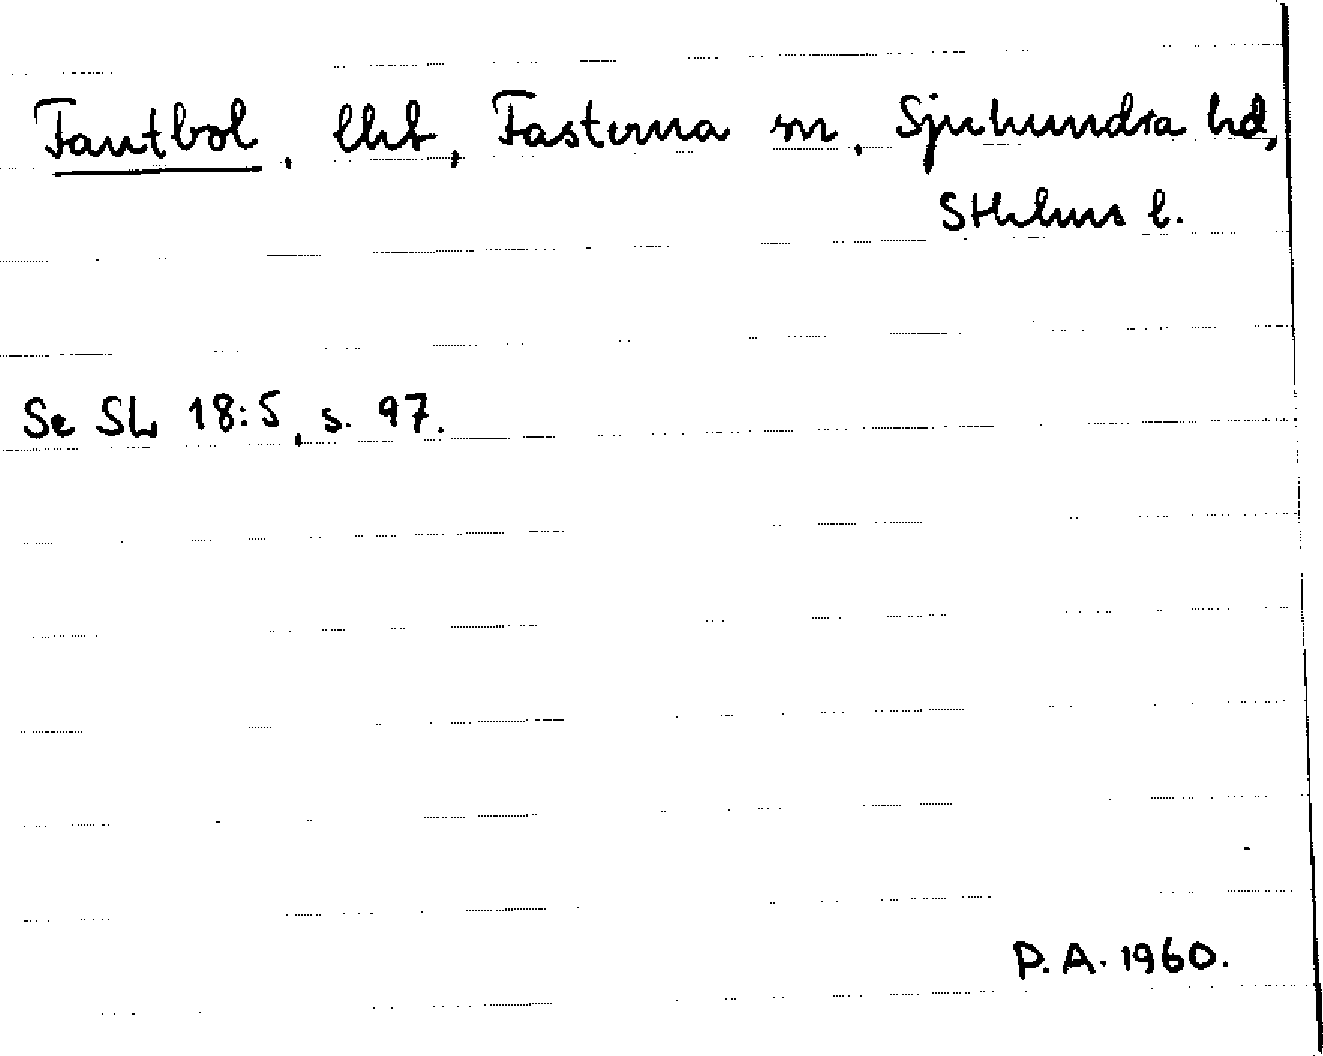 Fantbol, lht, Fasterna sn, Sjuhundra hd,
Sthlms l.
Se SL 18:5, s. 97.
P.A. 1960.